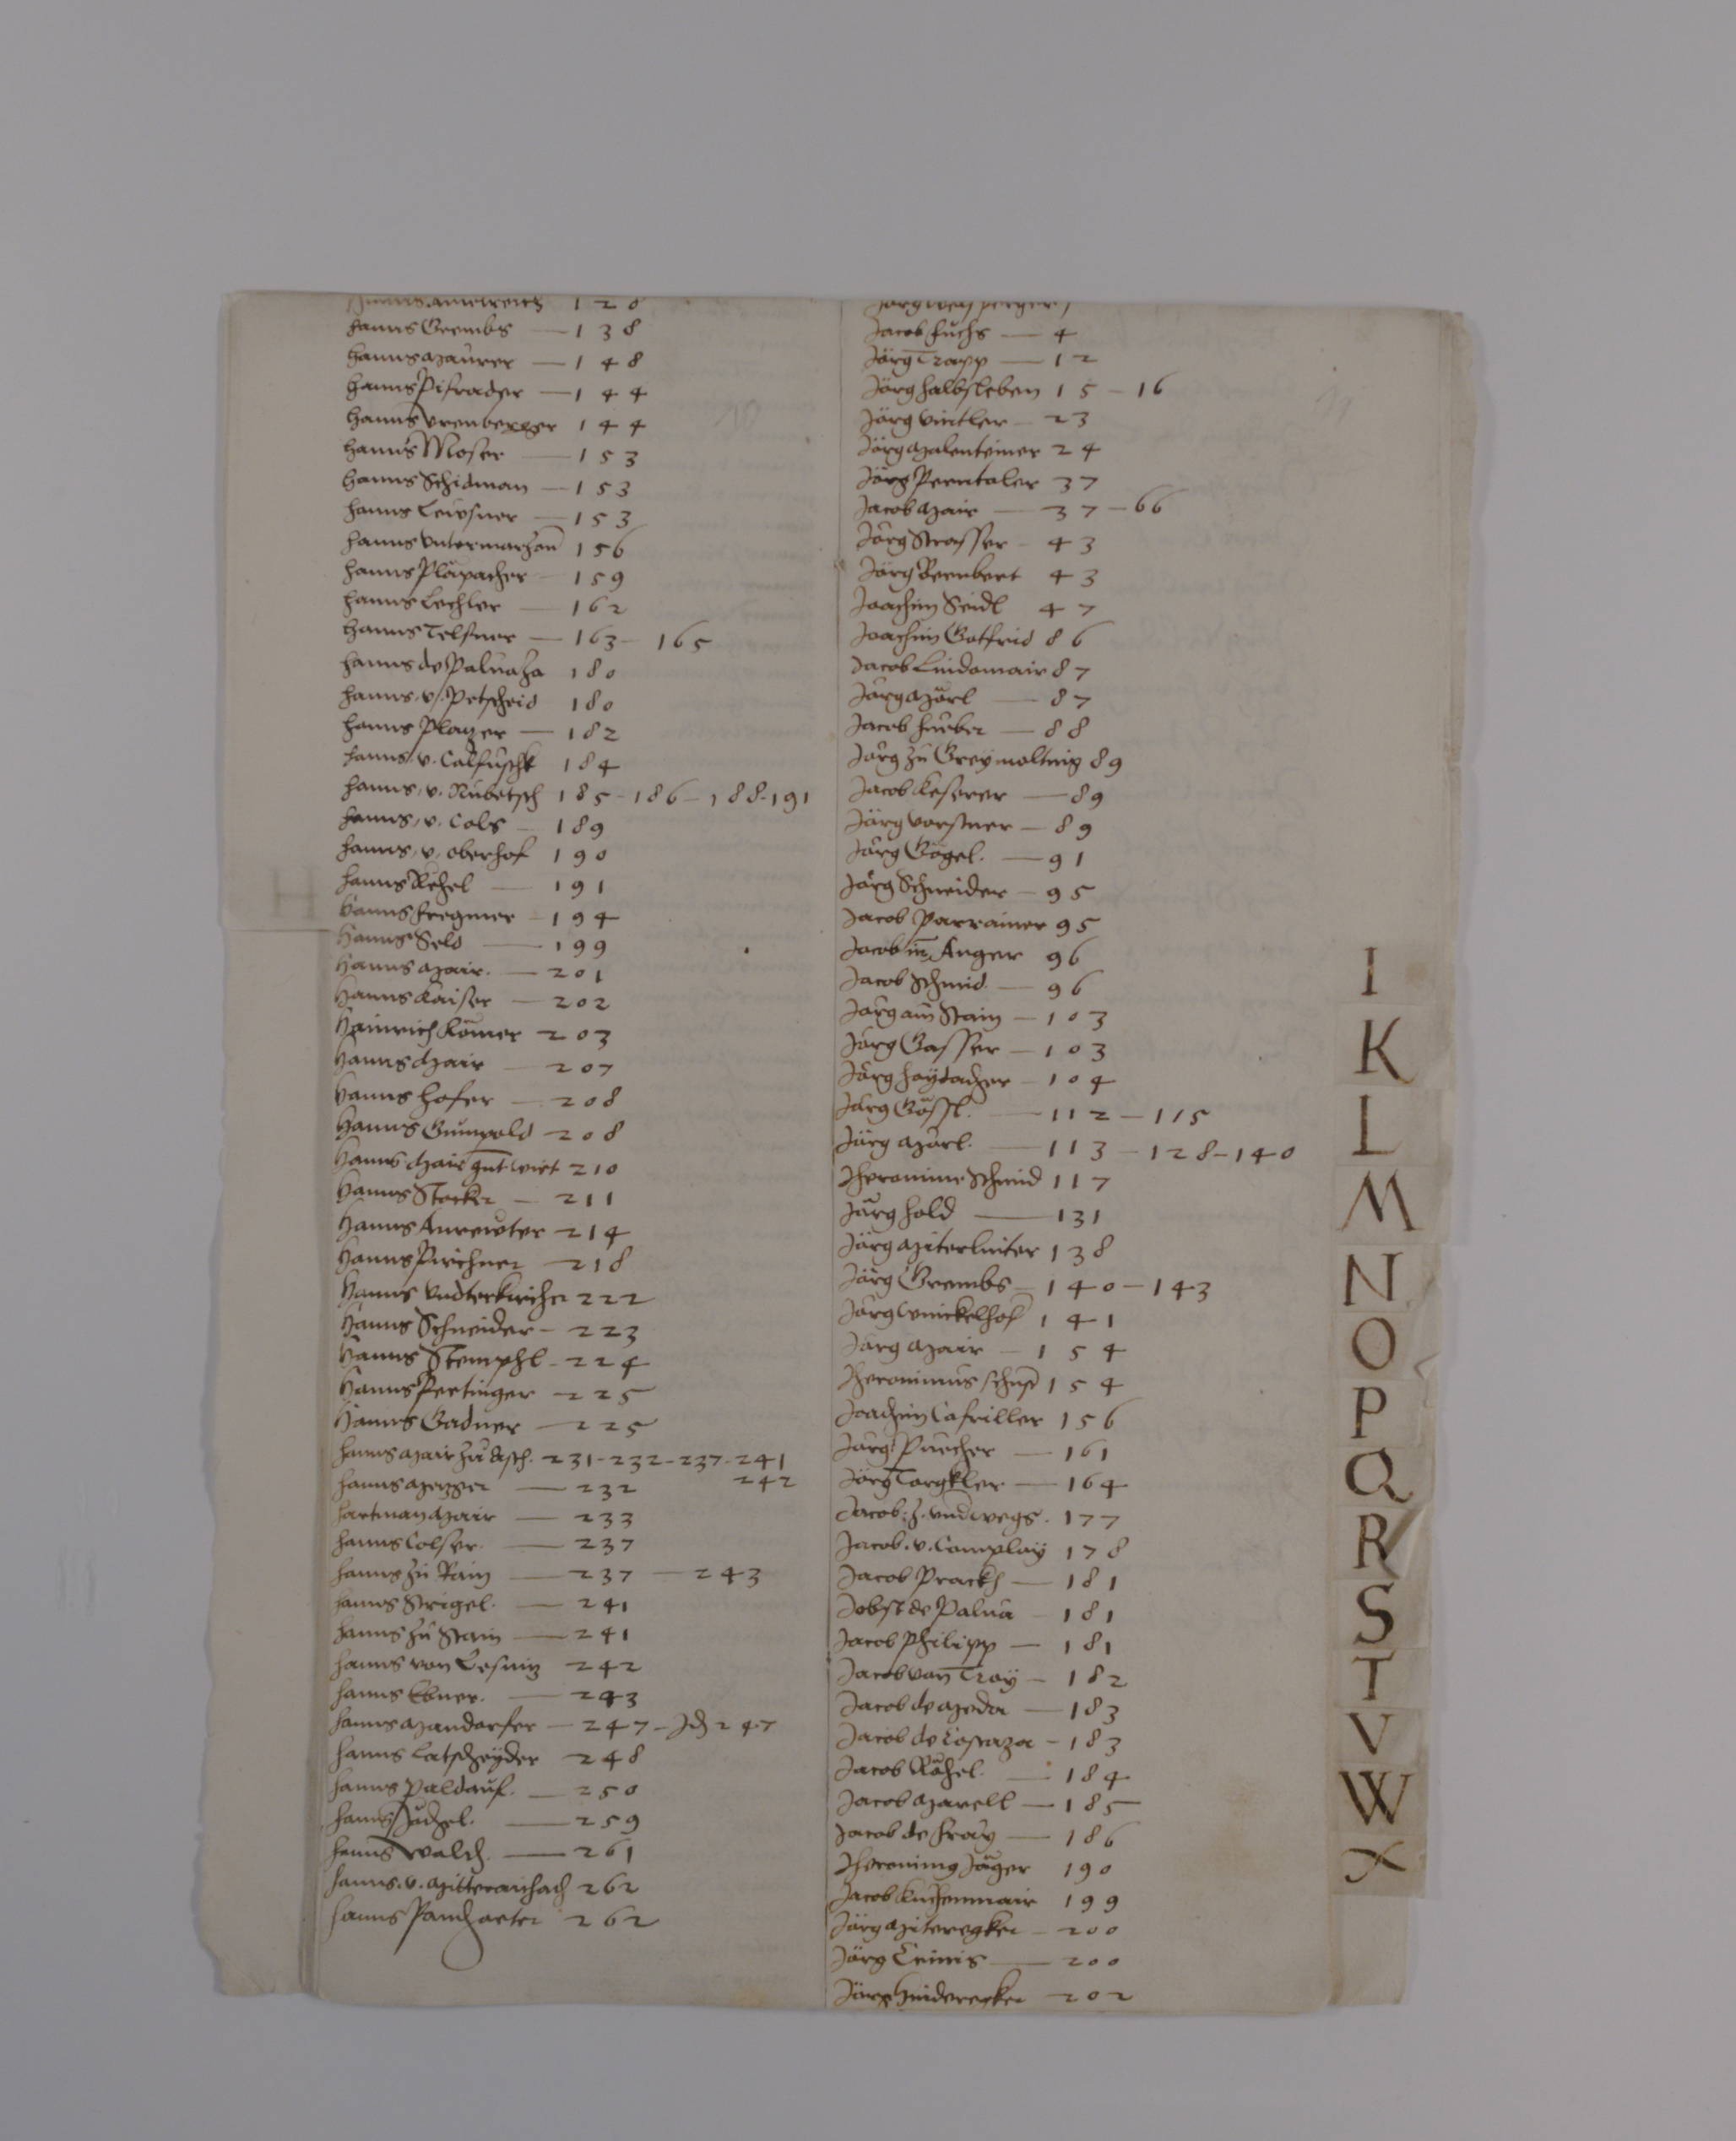 Hanns Amelreich 128
Hanns Grembs — 138
Hanns Maurer — 148
Hanns Pifrader — 144
Hanns Vrenberger 144
Hanns Moser — 153
Hanns Schidman — 153
Hanns Leirsner — 153
Hanns Vntermarzon 156
Hanns Pläpacher — 159
Hanns Lechler — 162
Hanns Telsner — 163 — 165
Hanns de Paluaza 180
Hanns v. Petscheid 180
Hanns Plazer — 182
Hanns v. Calfuschk 184
Hanns v. Rubatsch 185 - 186 - 188 - 191
Hanns v. Cols — 189
Hanns v. Oberhof 190
Hanns Rehel — 191
Hanns Fregner — 194
Hanns Seld — 199
Hanns Mair — 201
Hanns Kaiser — 202
Hainrich Römer 203
Hanns Mair — 207
Hanns Hofer — 208
Hanns Gumpold 208
Hanns Mair gnt wirt 210
Hanns Stocker — 211
Hanns Aurewter 214
Hanns Pirchner 218
Hanns Vndterkircher 222
Hanns Schneider — 223
Hanns Stemphl — 224
Hanns Pertinger — 225
Hanns Gadner — 225
Hanns Mair zu Asch 231 - 232 - 237 - 241
242
Hanns Mezger — 232
Hartman Mair — 233
Hanns Colser — 237
Hanns zu Rain — 237 — 243
Hanns Strigel — 241
Hanns zu Stain — 241
Hanns von Lesnig 242
Hanns Ebner — 243
Hanns Mandorfer — 247 - Id 247
Hanns Latschzeyder 248
Hanns Paldauf — 250
Hanns Jächel — 259
Hanns Walch — 261
Hanns v. Mitteraichach 262
Hanns Pancharter 262
H
Jacob Fuchs — 4
Jörg Trapp — 12
Jörg Halbsleben 15 - 16
Jörg Vintler — 23
Jörg Malenteiner 24
Jörg Perntaler 37
Jacob Mair — 37 - 66
Jörg Strasser — 43
Jörg Bernbert 43
Joachim Seidl 47
Joachim Gotfrid 86
Jacob Lindamair 87
Jörg Märl — 87
Jacob Hueber — 88
Jörg zu Greymolting 89
Jacob Keserer — 89
Jörg Vorstner — 89
Jörg Gögel — 91
Jörg Schneider — 95
Jacob Parrainer 95
Jacob im Anger 96
Jacob Schmid — 96
Jörg am Stain — 103
Jörg Gasser — 103
Jörg Haydacher — 104
Jörg Gössl — 112 — 115
Jörg Märl — 113 — 128 - 140
Jheronime Schmid 117
Jörg Hold — 131
Jörg Miterluiter 138
Jörg Grembs — 140 — 143
Jörg Winckelhof 141
Jörg Mair — 154
Jheronimus Schust 154
Joachim Cafriller 156
Jörg Puecher — 161
Jörg Torgkler — 164
Jacob z. vndwegs 177
Jacob v. Complay 178
Jacob Prackh — 181
Jobst de Palua — 181
Jacob Philipp — 181
Jacob von Troy — 182
Jacob de Meda — 183
Jacob de Costaza — 183
Jacob Röhel — 184
Jacob Marell — 185
Jacob de Fray — 186
Jheronimy Jäger 190
Jacob Kuchenmair 199
Jörg Miteregker — 200
Jörg Trinis — 200
Jörg Hinderegker 202
I
K
L
M
N
O
P
Q
R
S
T
V
W
X